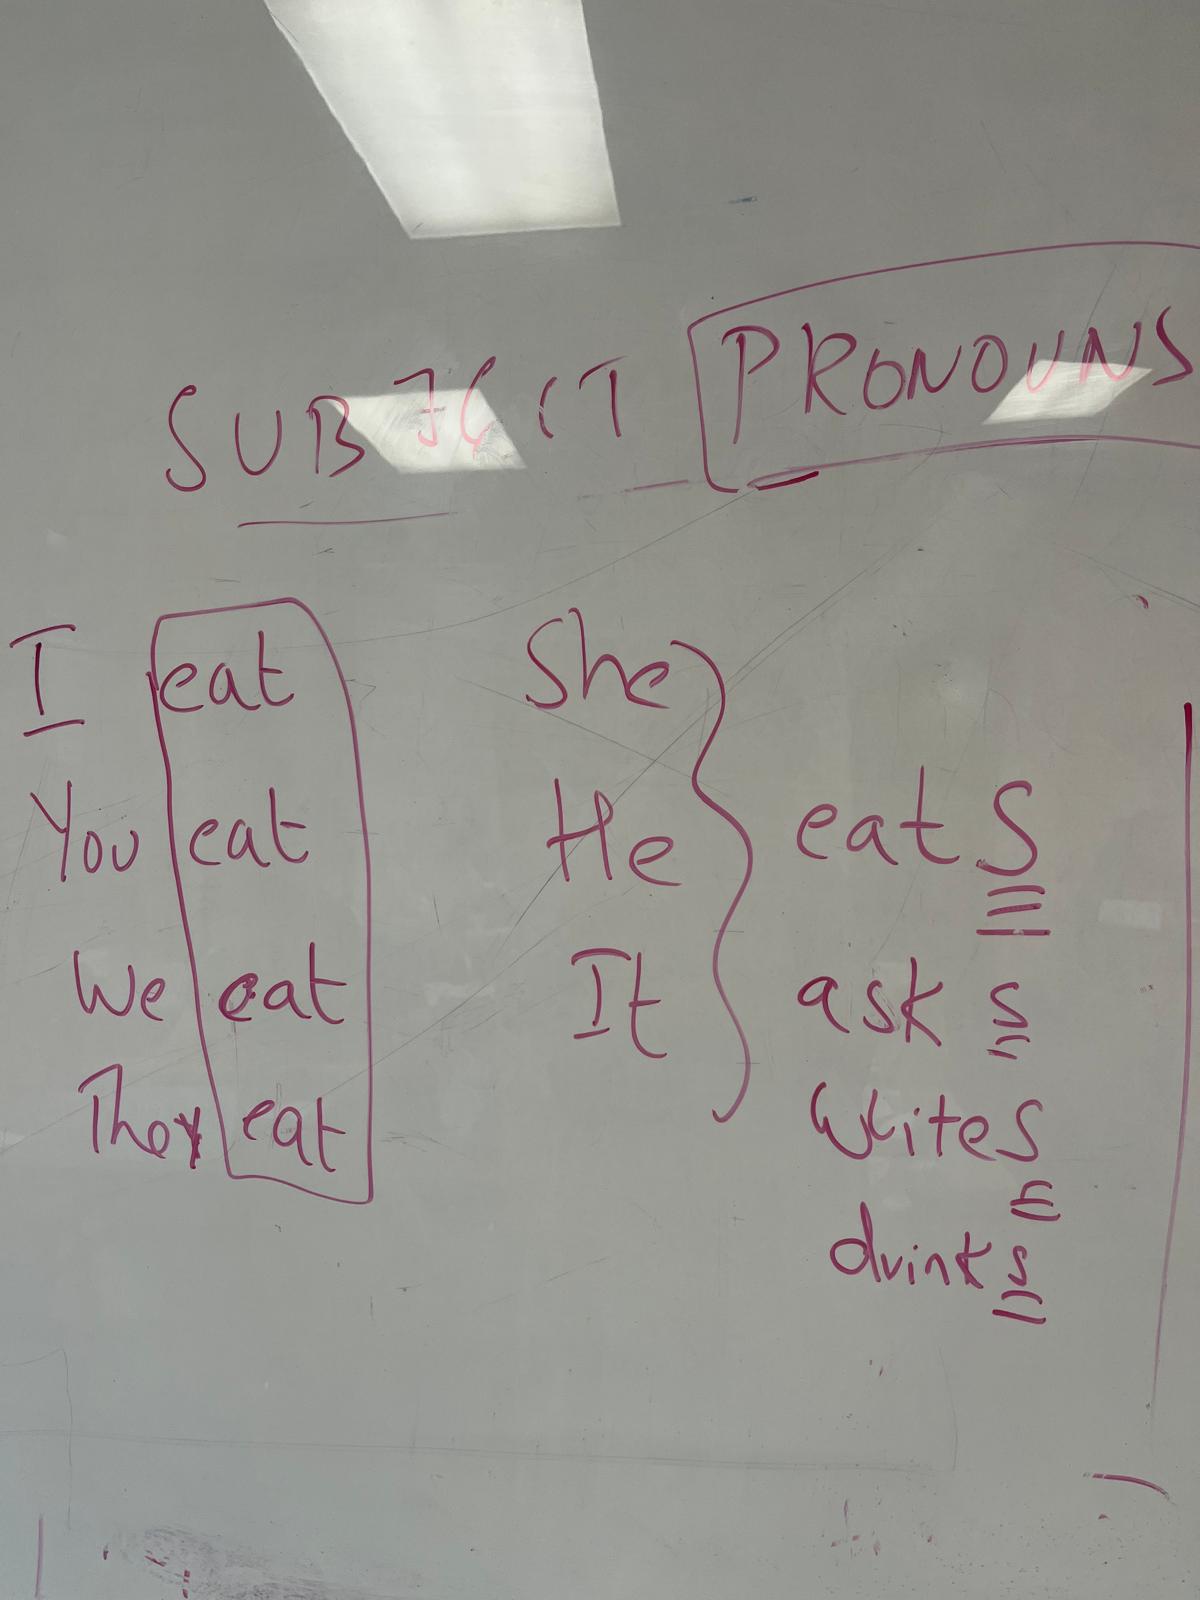 SUBJECT PRONOUNS
I eat
You eat
We eat
They eat
She
He
It
eatS
asks
writes
drinks